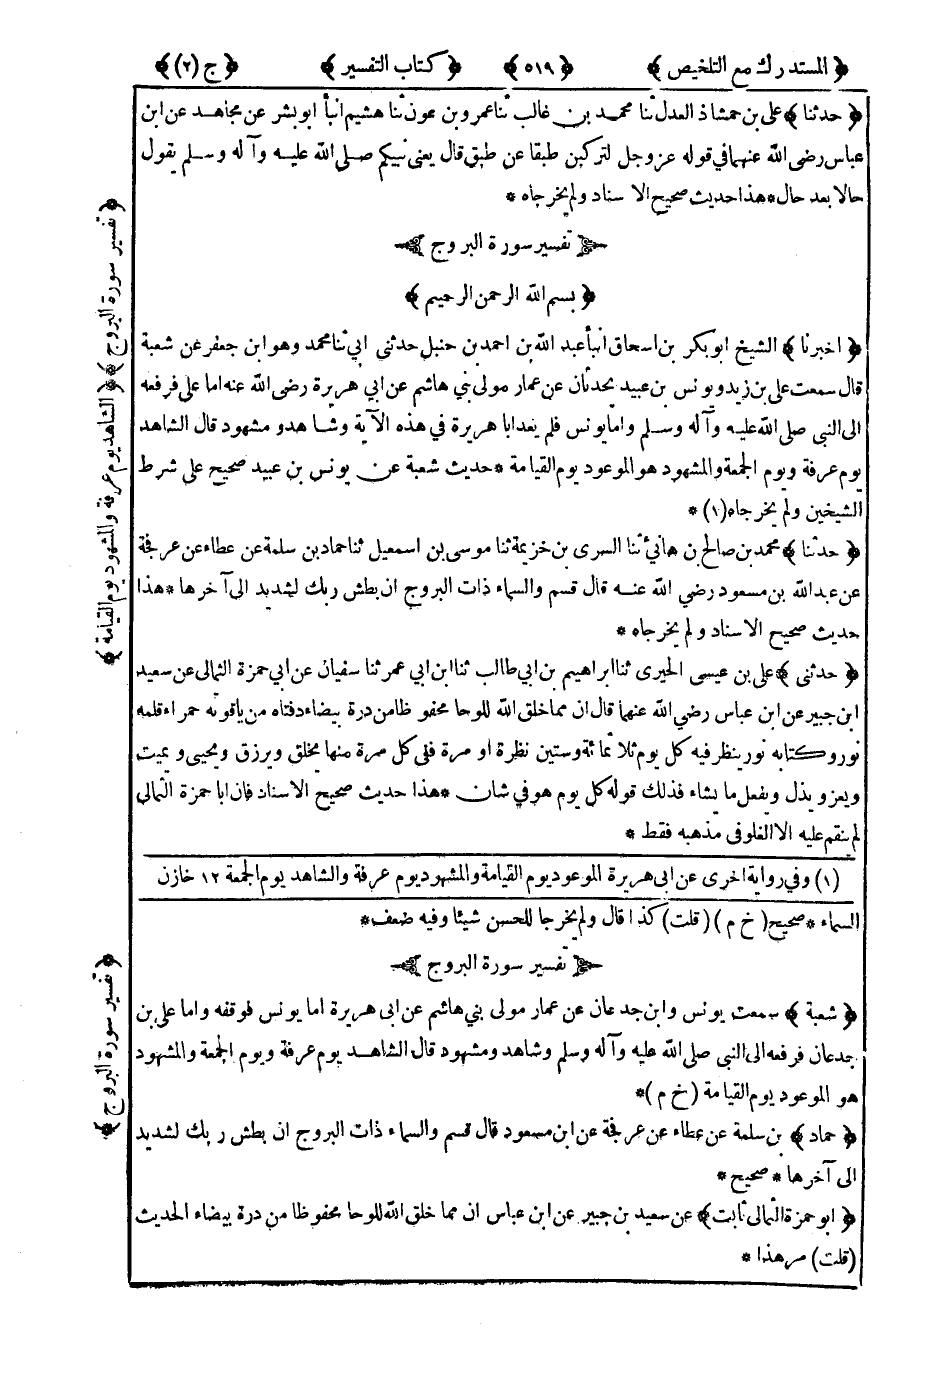 ﴿ المستدرك مع التلخيص ﴾ ﴿ ٥١٩ ﴾ ﴿ كتاب التفسير ﴾ ﴿ ج (٢) ﴾
﴿ حدثنا ﴾ علي بن حمشاذ العدل ثنا محمد بن غالب ثنا عمرو بن عون ثنا هشيم انبأ ابو بشر عن مجاهد عن ابن
عباس رضى الله عنهما في قوله عز وجل لتركبن طبقا عن طبق قال يعنى نبيكم صلى الله عليه وآله وسلم يقول
حالا بعد حال * هذا حديث صحيح الاسناد ولم يخرجاه *
تفسير سورة البروج
﴿ بسم الله الرحمن الرحيم ﴾
﴿ اخبرنا ﴾ الشيخ ابو بكر بن اسحاق انبأ عبد الله بن احمد بن حنبل حدثنى ابي ثنا محمد وهو ابن جعفر عن شعبة
قال سمعت علي بن زيد ويونس بن عبيد يحدثان عن عمار مولى بني هاشم عن ابي هريرة رضى الله عنه اما علي فرفعه
الى النبي صلى الله عليه وآله وسلم واما يونس فلم يعد ابا هريرة في هذه الآية وشاهد ومشهود قال الشاهد
يوم عرفة ويوم الجمعة والمشهود هو الموعود يوم القيامة * حديث شعبة عن يونس بن عبيد صحيح على شرط
الشيخين ولم يخرجاه (١) *
﴿ حدثنا ﴾ محمد بن صالح بن هاني ثنا السرى بن خزيمة ثنا موسى بن اسمعيل ثنا حماد بن سلمة عن عطاء عن عرفجة
عن عبد الله بن مسعود رضي الله عنه قال قسم والسماء ذات البروج ان بطش ربك لشديد الى آخرها * هذا
حديث صحيح الاسناد ولم يخرجاه *
﴿ حدثنى ﴾ علي بن عيسى الحيرى ثنا ابراهيم بن ابي طالب ثنا ابن ابي عمر ثنا سفيان عن ابي حمزة الثمالى عن سعيد
ابن جبير عن ابن عباس رضي الله عنهما قال ان مما خلق الله للوحا محفوظا من درة بيضاء دفتاه من ياقوته حمراء قلمه
نور وكتابه نور ينظر فيه كل يوم ثلاثمائة وستين نظرة او مرة ففى كل مرة منها يخلق ويرزق ويحيى ويميت
ويعز ويذل ويفعل ما يشاء فذلك قوله كل يوم هو في شان * هذا حديث صحيح الاسناد فان ابا حمزة الثمالى
لم ينقم عليه الا الغلو فى مذهبه فقط *
(١) وفي رواية اخرى عن ابى هريرة الموعود يوم القيامة والمشهود يوم عرفة والشاهد يوم الجمعة ١٢ خازن
السماء * صحيح ( خ م ) ( قلت ) كذا قال ولم يخرجا للحسن شيئا وفيه ضعف *
تفسير سورة البروج
﴿ شعبة ﴾ سمعت يونس وابن جدعان عن عمار مولى بني هاشم عن ابى هريرة اما يونس فوقفه واما علي بن
جدعان فرفعه الى النبي صلى الله عليه وآله وسلم وشاهد ومشهود قال الشاهد يوم عرفة ويوم الجمعة والمشهود
هو الموعود يوم القيامة ( خ م ) *
﴿ حماد ﴾ بن سلمة عن عطاء عن عرفجة عن ابن مسعود قال قسم والسماء ذات البروج ان بطش ربك لشديد
الى آخرها * صحيح *
﴿ ابو حمزة الثمالى ثابت ﴾ عن سعيد بن جبير عن ابن عباس ان مما خلق الله للوحا محفوظا من درة بيضاء الحديث
( قلت ) مر هذا *
﴿ تفسير سورة البروج ﴾ ﴿ الشاهد يوم عرفة والمشهود يوم القيامة ﴾
﴿ تفسير سورة البروج ﴾